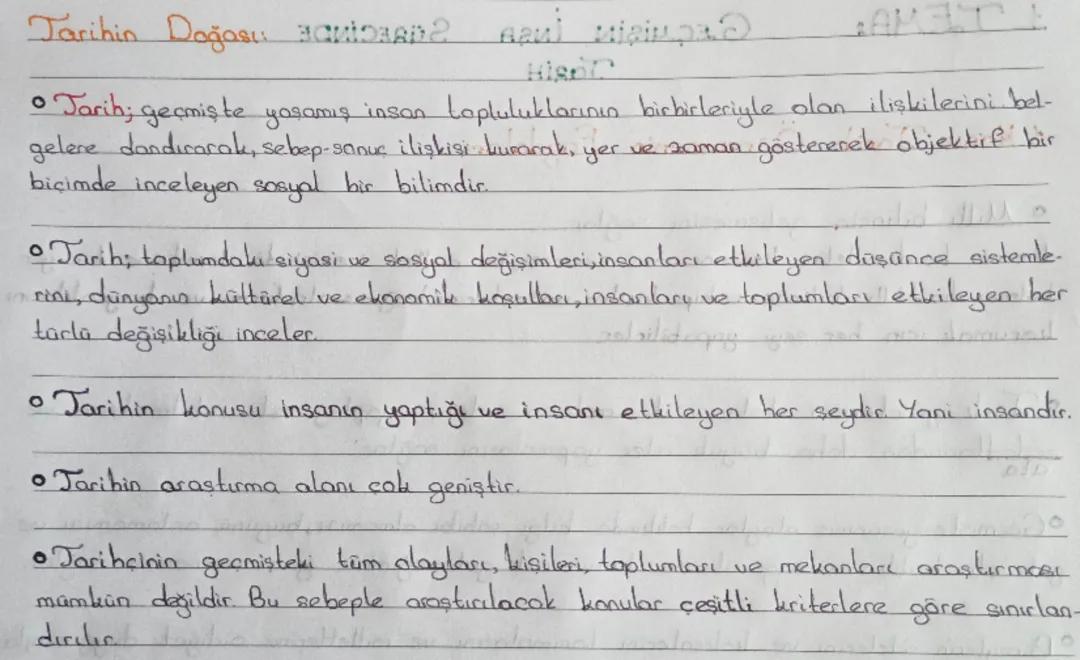 Tarihin Doğası:
• Tarih; geçmişte yaşamış insan topluluklarının birbirleriyle olan ilişkilerini bel-
gelere dandırarak, sebep-sonuç ilişkisi kurarak, yer ve zaman göstererek objektif bir
biçimde inceleyen sosyal bir bilimdir.
• Tarih; toplumdaki siyasi ve sosyal değişimleri, insanları etkileyen düşünce sistemle-
rini, dünyanın kültürel ve ekonomik koşulları, insanları ve toplumları etkileyen her
türlü değişikliği inceler.
• Tarihin konusu insanın yaptığı ve insanı etkileyen her şeydir. Yani insandır.
• Tarihin araştırma alanı çok geniştir.
• Tarihçinin geçmişteki tüm olayları, kişileri, toplumları ve mekanları araştırması
mümkün değildir. Bu sebeple araştırılacak konular çeşitli kriterlere göre sınırlan-
dırılır.